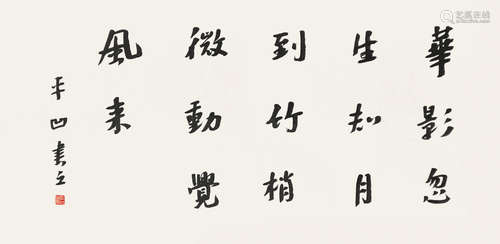 華影忽
生知月
到竹梢
微動覺
風来
平凹書之